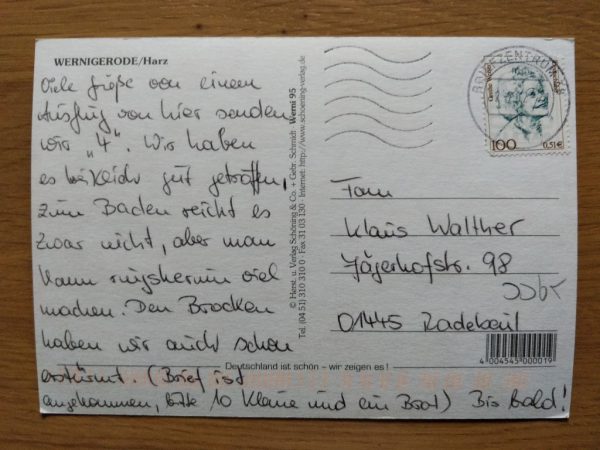 WERNIGERODE/Harz
Viele Grüße von einem
Ausflug von hier senden
wir „4“. Wir haben
es gut getroffen -
zum Baden reicht es
zwar nicht, aber man
kann ringsherum viel
machen. Den Brocken
haben wir auch schon
erstürmt. (Brief ist
angekommen, bitte 10 Kleine und ein Brot) Bis bald!
© Herst. u. Verlag Schöning & Co. + Gebr. Schmidt Werni 95
Tel. (04 51) 310 310 0 · Fax 31 03 130 · Internet: http://www.schoening-verlag.de
BRIEFZENTRUM
100
0,51€
Fam
Klaus Walther
Jägerhofstr. 98
01445 Radebeul
4 004545 000019
Deutschland ist schön – wir zeigen es!